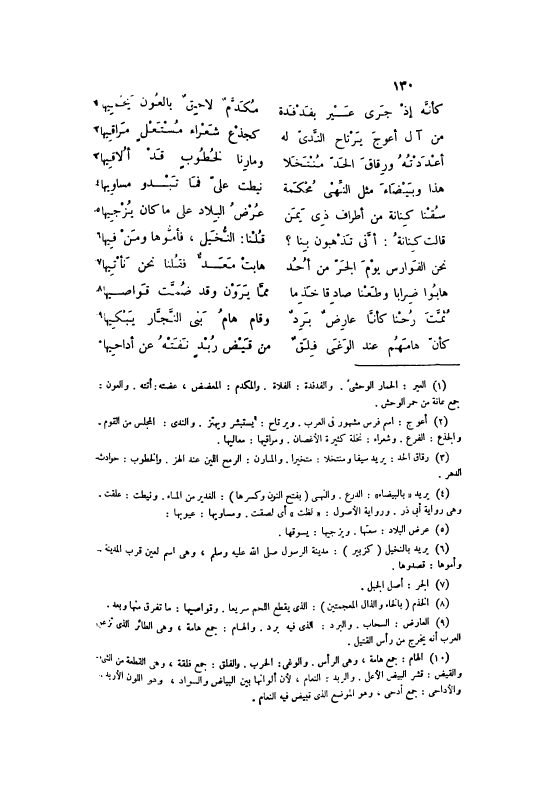 ١٣٠
كأنَّه إذْ جَرى عَــيْر بفَدْفَدة مُكَدَّمٌ لاحِقٌ بالعُون يَحْميها١
من آل أعوجَ يَرْتاح النَّدىّ له كجِذْعِ شَعْراء مُسْتَعْلٍ مَراقيها٢
أعْدَدْتُهُ ورِقاقَ الحَدّ مُنْتَخَلا ومارِنا لخُطُوبٍ قَدْ أُلاقيها٣
هذا وبَيْضاءَ مثل النِّهْى مُحْكَمَة نِيطت علىّ فَما تَبْـدو مساويها٤
سُقْنا كِنانة من أطراف ذى يَمَن عَرْضُ البلاد على ما كان يُزْجيها٥
قالت كِنانةُ : أنَّى تذْهبون بنا ؟ قُلنا: النُّخَيل ، فأمُّوها ومَنْ فيها٦
نحن الفوارس يوْمَ الجَرّ من أُحُد هابتْ مَعَدّ فقُلنا نحن نَأْتيها٧
هابُوا ضِرابا وطَعْنا صادِقا خَذِما ممَّا يَرَوْن وقد ضُمَّت قَواصيـها٨
ثُمَّتَ رُحْنا كأنَّا عارِضٌ بَرِدٌ وقام هامُ بَنى النَّجَّار يَبْكيها٩
كأنّ هامَهُم عند الوَغَى فِلَقٌ من قَيْض رُبْدٍ نَفَتْهُ عن أداحيها١٠
(١) العير : الحمار الوحشىّ . والفدفدة : الفلاة . والمكدم : المعضض ، عضته: أتنه . والعون :
جمع عانة من حمر الوحش .
(٢) أعوج : اسم فرس مشهور فى العرب . ويرتاح : يستبشر ويهتز . والندى : المجلس من القوم .
والجذع : الفرع . وشعراء : نخلة كثيرة الأغصان . ومراقيها : معاليها .
(٣) رقاق الحد : يريد سيفا ومنتخلا : متخيرا . والمارن : الرمح اللين عند الهز . والخطوب : حوادث
الدهر .
(٤) يريد « بالبيضاء» : الدرع . والنهى ( بفتح النون وكسرها ) : الغدير من الماء . ونيطت : علقت .
وهى رواية أبى ذر . ورواية الأصول : « لظت » أى لصقت . ومساويها : عيوبها :
(٥) عرض البلاد : سعتها . ويزجيها : يسوقها .
(٦) يريد بالنخيل ( كزبير ) : مدينة الرسول صلى الله عليه وسلم ، وهى اسم لعين قرب المدينة .
وأموها : قصدوها .
(٧) الجر : أصل الجبل .
(٨) الخذم ( بالخاء والذال المعجمتين ) : الذى يقطع اللحم سريعا . وقواصيها : ما تفرق منها وبعد .
(٩) العارض : السحاب . والبرد : الذى فيه برد . والهام : جمع هامة ، وهى الطائر الذى تزعم
العرب أنه يخرج من رأس القتيل .
(١٠) الهام : جمع هامة ، وهى الرأس . والوغى: الحرب . والفلق : جمع فلقة ، وهى القطعة من الشىء
والقيض : قشر البيض الأعل . والربد : النعام ، لأن ألوانها بين البياض والسواد ، وهو اللون الأربد .
والأداحى : جمع أدحى ، وهو الموضع الذى تبيض فيه النعام .